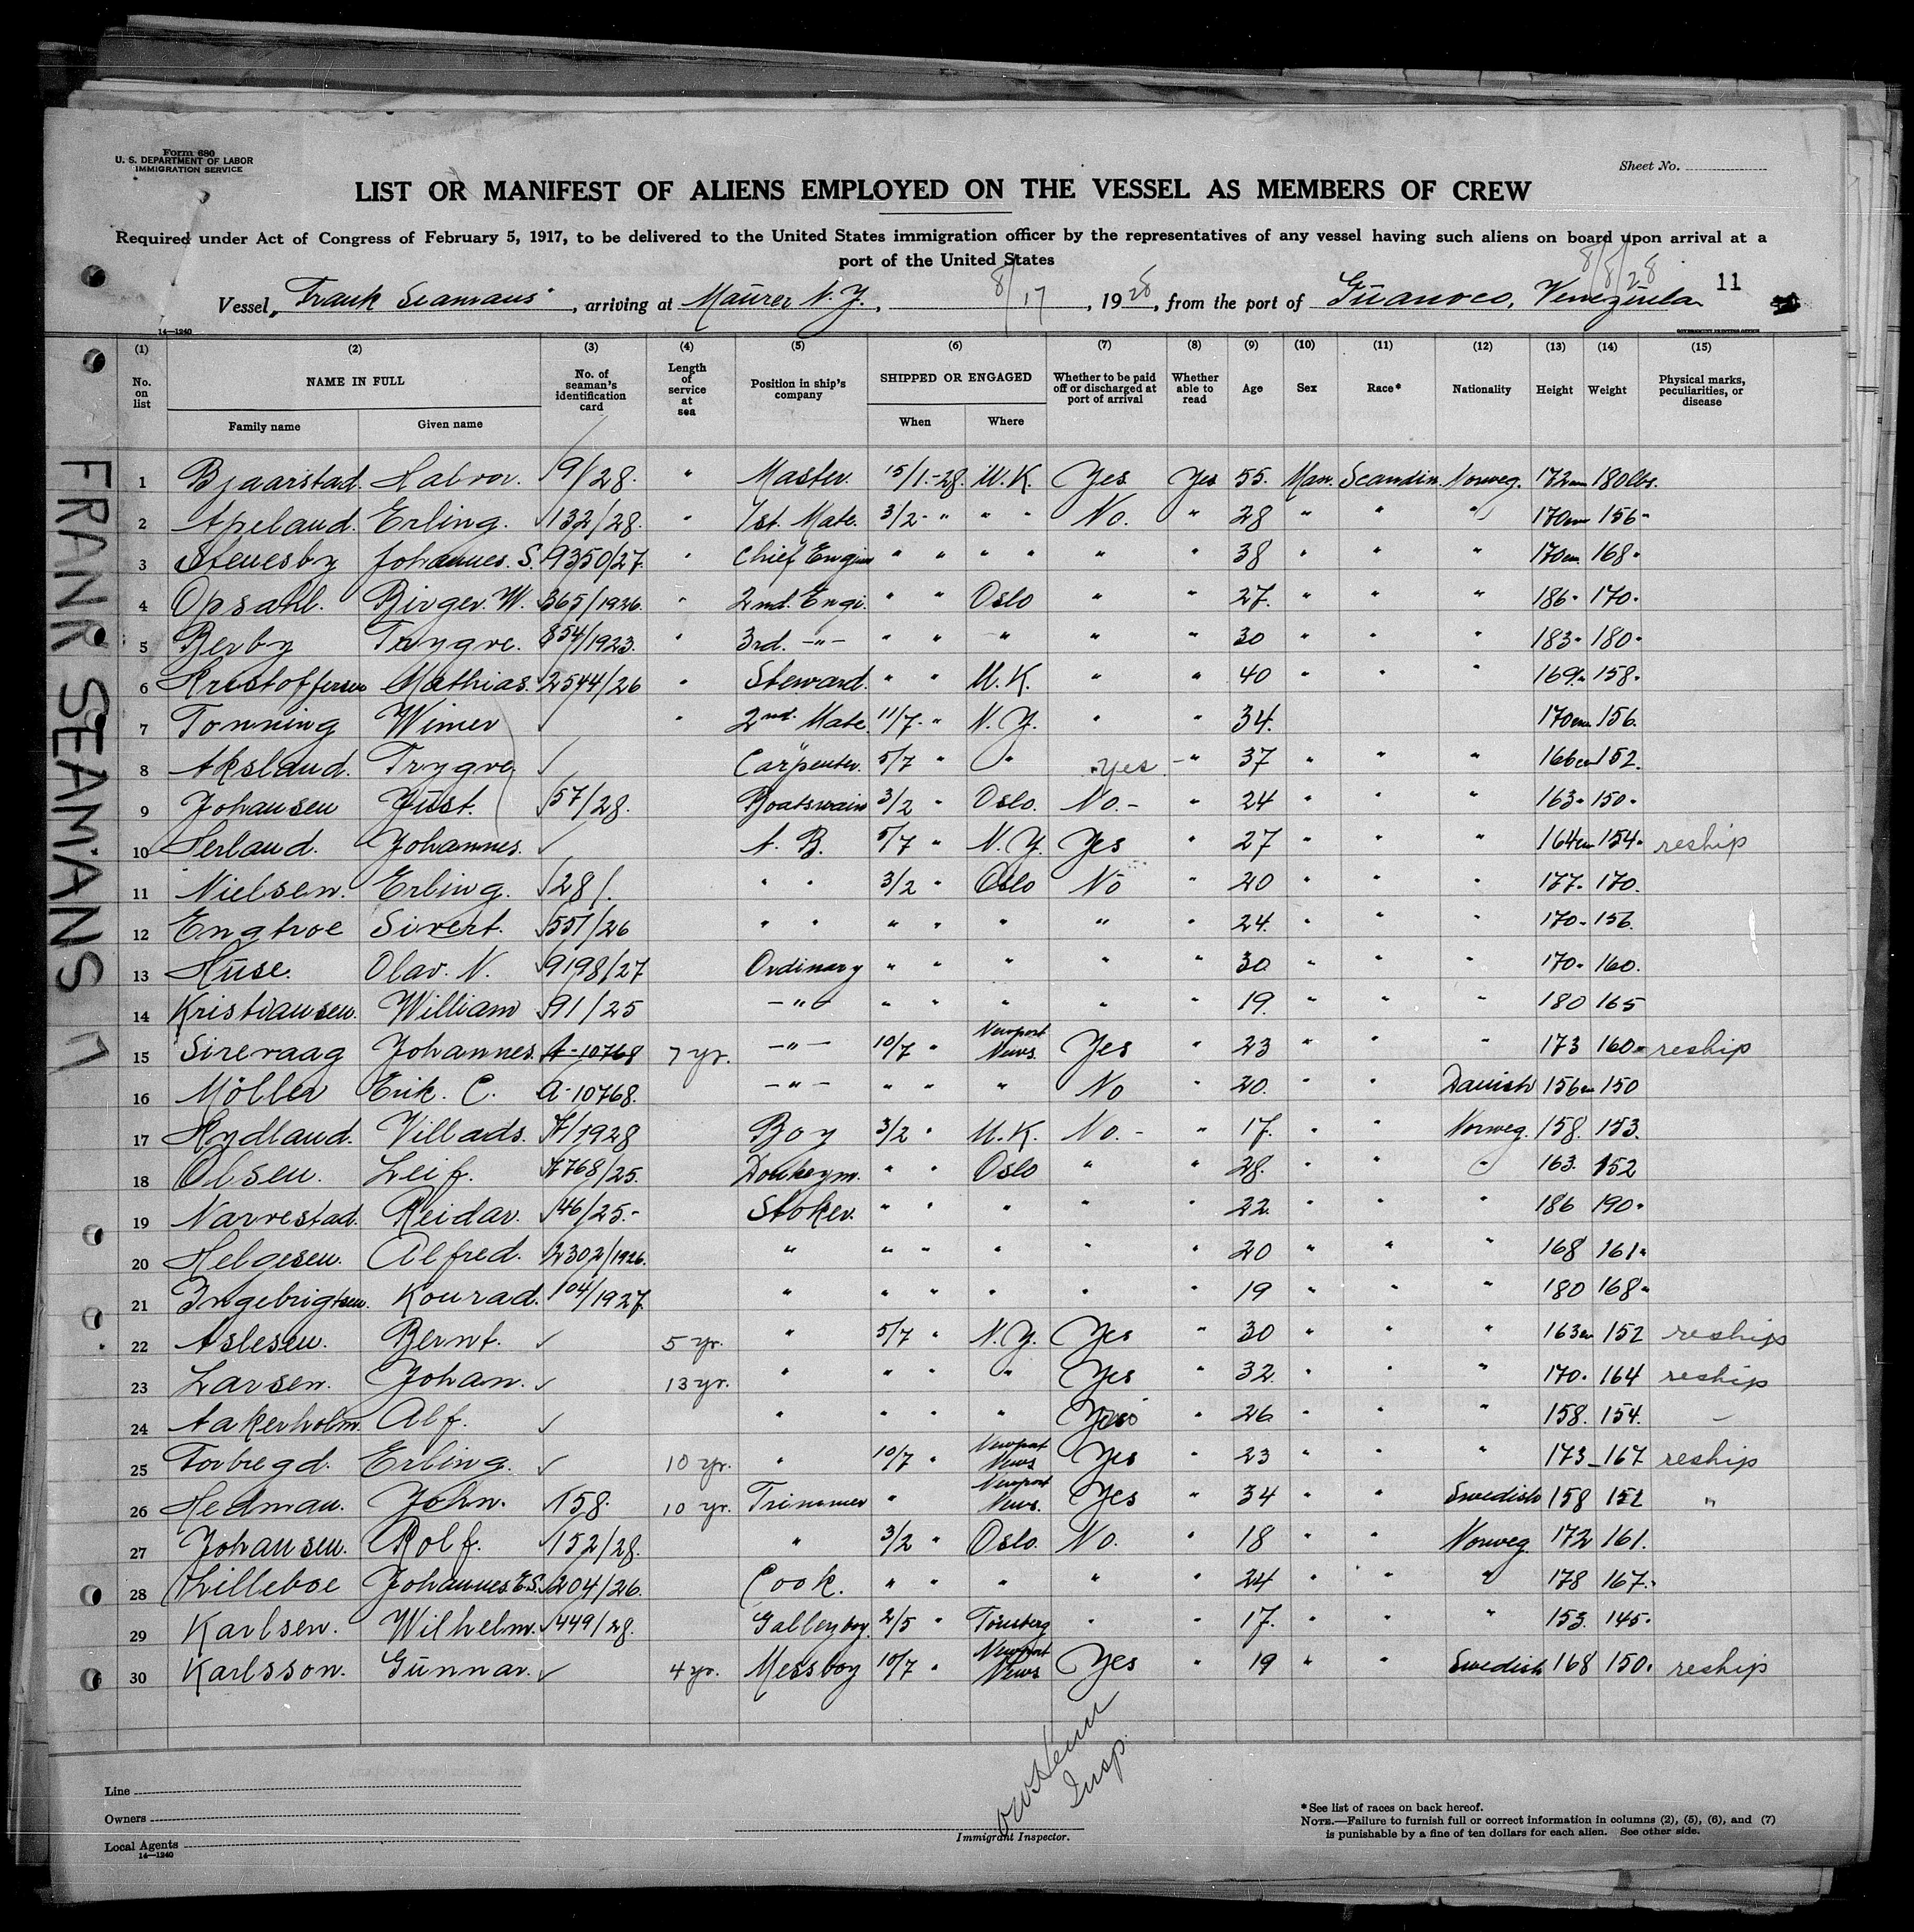 Form 680
U. S. DEPARTMENT OF LABOR
IMMIGRATION SERVICE
Sheet No.
LIST OR MANIFEST OF ALIENS EMPLOYED ON THE VESSEL AS MEMBERS OF CREW
Required under Act of Congress of February 5, 1917, to be delivered to the United States immigration officer by the representatives of any vessel having such aliens on board upon arrival at a
port of the United States
8/8/28
11
Vessel „Frank Seamans", arriving at Maurer N. Y., 8/17, 1928, from the port of Guanoco, Venezuela
14—1240
GOVERNMENT PRINTING OFFICE
FRANK SEAMANS
(1) (2) (3) (4) (5) (6) (7) (8) (9) (10) (11) (12) (13) (14) (15)
No. on list NAME IN FULL Family name Given name No. of seaman's identification card Length of service at sea Position in ship's company SHIPPED OR ENGAGED When Where Whether to be paid off or discharged at port of arrival Whether able to read Age Sex Race* Nationality Height Weight Physical marks, peculiarities, or disease
1 Bjaarstad. Halvor. 9/28. " Master. 15/1.-28. U.K. Yes Yes 55. Man. Scandin. Norweg. 172cm 180lbs.
2 Apeland. Erling. 132/28. " 1st. Mate. 3/2- " " " No. " 28 " " " 170cm 156 "
3 Stenesby Johannes. S. 9350/27. " Chief Engin " " " " " " 38 " " " 170cm. 168 "
4 Opsahl. Birger. W. 365/1926. " 2nd. Engi. " " Oslo " " 27. " " " 186 " 170 "
5 Berby Trygve. 854/1923. " 3rd. -"- " " " " " 30 " " " 183 " 180 "
6 Kristoffersen Mathias. 2544/26 " Steward. " " U.K. " " 40 " " " 169 " 158 "
7 Tonning Wimer ✓ " 2nd. Mate 11/7. " N.Y. " " 34. 170cm 156.
8 Aksland. Trygve ✓ Carpenter. 5/7 " " Yes - " 37 " " " 166cm 152.
9 Johansen Just. 57/28. Boatswain 3/2 " Oslo. No. - " 24 " " " 163 " 150 "
10 Herland. Johannes. ✓ A. B. 5/7 " N.Y. Yes " 27 " " " 164cm 154 " reship
11 Nielsen. Erling. 28/. " " 3/2 " Oslo No " 20 " " " 177 " 170.
12 Engtroe Sivert. 551/26 " " " " " " " 24. " " " 170 " 156.
13 Huse. Olav. N. 9198/27 Ordinary " " " " " 30 " " " 170 " 160.
14 Kristiansen. William 91/25 -"- " " " " " 19. " " " 180 165
15 Sirevaag Johannes. A-10768 7 yr. -"- 10/7 " Newport News Yes " 23 " " " 173 160 " reship
16 Möller Erik. C. A-10768. -"- " " " No " 20. " " Danish 156cm 150
17 Hydland. Villads. 1/1928 Boy 3/2 " U.K. No. - " 17. " " Norweg. 158. 153.
18 Olsen. Leif. 768/25. Donkeym. " " Oslo " " 28. " " " 163. 152
19 Narvestad. Reidar. 46/25.- Stoker. " " " " " 22. " " " 186 190 "
20 Helgesen. Alfred. 2302/1926. " " " " " " 20 " " " 168 161 "
21 Ingebrigtsen. Konrad. 104/1927. " " " " " " 19 " " " 180 168 "
22 Aslesen. Bernt. ✓ 5 yr. " 5/7 " N.Y. Yes " 30 " " " 163cm 152 reship
23 Larsen. Johan. ✓ 13 yr. " " " " Yes " 32. " " " 170 " 164 reship
24 Aakerholm. Alf. ✓ " " " " Yes " 26 " " " 158. 154. -
25 Torbregd. Erling. ✓ 10 yr. " 10/7 " Newport News Yes " 23 " " " 173 - 167 reship
26 Hedman. John. 158. 10 yr. Trimmer " Newport News. Yes " 34 " " Swedish 158 152 "
27 Johansen. Rolf. 152/28. " 3/2 " Oslo. No. " 18 " " Norweg 172 161.
28 Lilleboe Johannes.E.S. 204/26. Cook. " " " " " 24 " " " 178 167.
29 Karlsen. Wilhelm. 449/28. Galleyboy. 2/5 " Tönsberg " " 17. " 153. 145 "
30 Karlsson. Gunnar. ✓ 4 yr. Messboy 10/7 " Newport News Yes " 19 " " Swedish 168 150. reship
Insp.
Line
Owners
Local Agents
14—1240
Immigrant Inspector.
* See list of races on back hereof.
NOTE.—Failure to furnish full or correct information in columns (2), (5), (6), and (7)
is punishable by a fine of ten dollars for each alien. See other side.